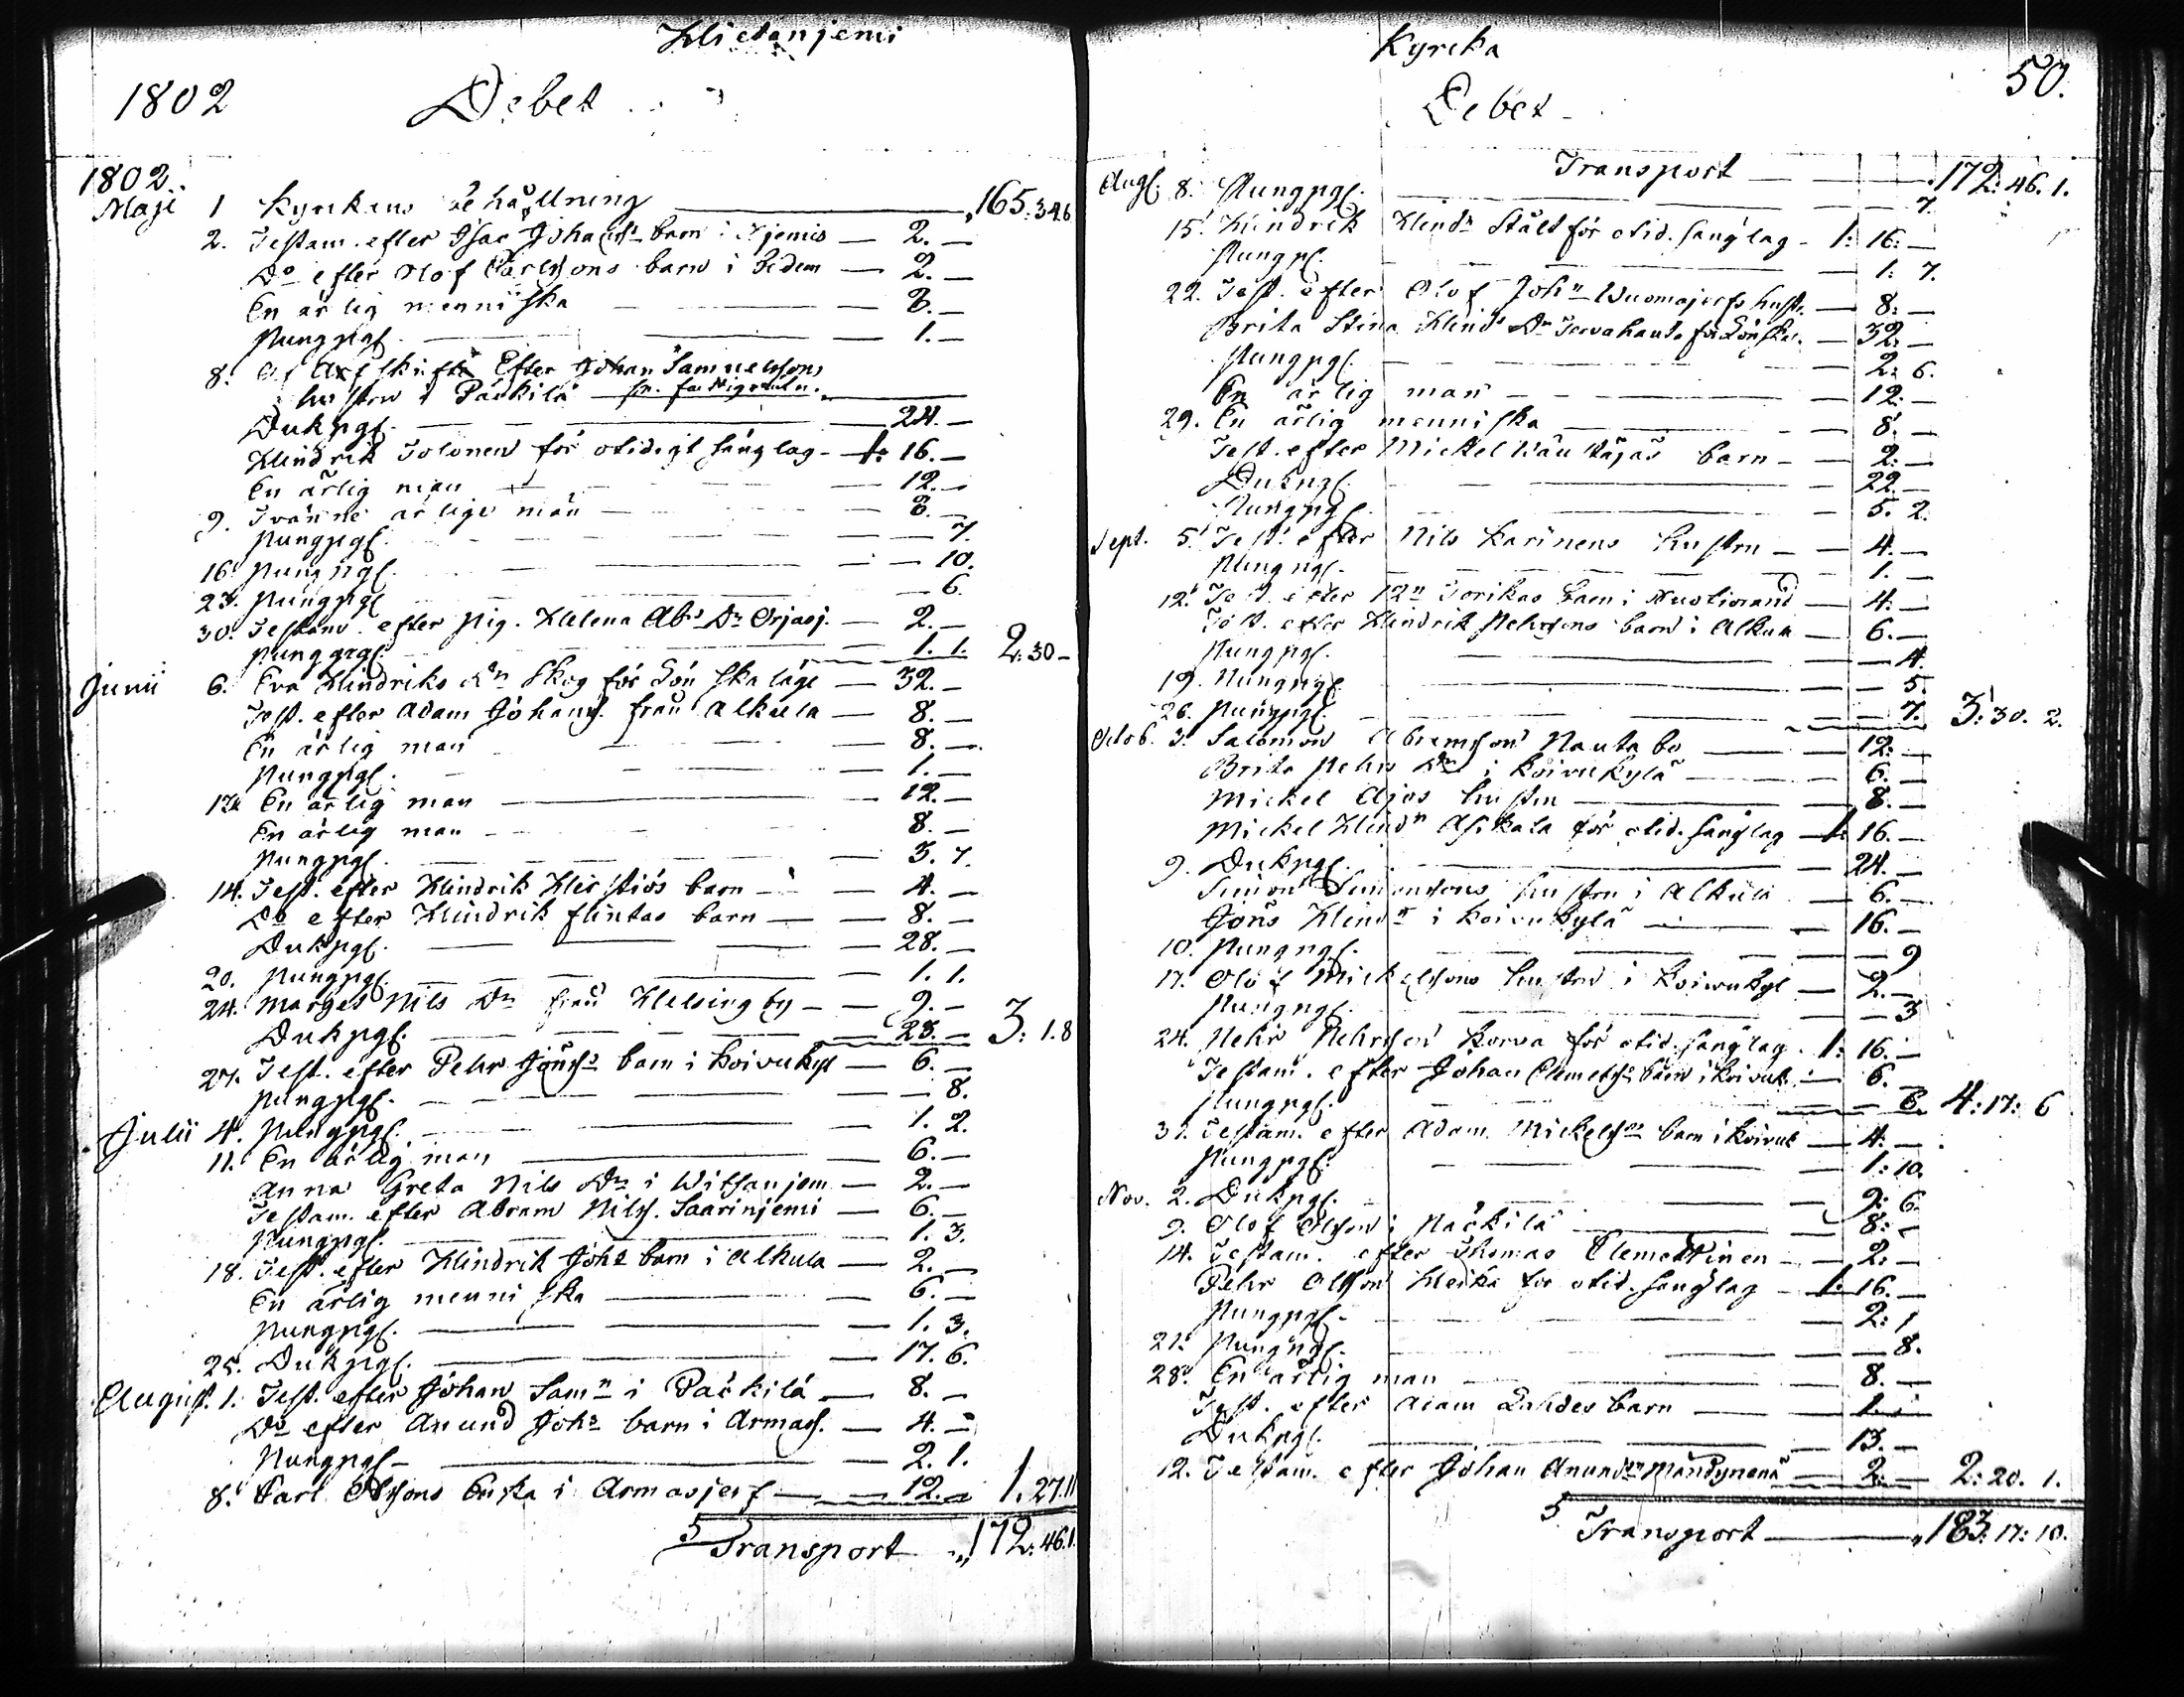 Hietanjemi
1802 Debet
1802.
Maji 1 Kyrkans behållning 165:34.6
2. Testam. efter Isac Johanss. barn i Njemis 2. —
Do efter Olof Carlssons barn i Ibidem 2. —
En ärlig menniska 8. —
Pungpgr. 1. —
8. Af Arfskifte Efter Johan Samuelssons
hustru i Päckilä
Dukpgr. 24. —
Hindrik Tolonen för otidigt sänglag 1: 16. —
En ärlig man 12. —
9. Tvänne ärlige män 8. —
Pungpgr. 7.
16. Pungpgr. 10.
23. Pungpgr. 6.
30. Testam. efter Pig. Helena Abr. Dr Orjasj. 2. —
Pungpgr. 1. 1. 2:30 —
Junii 6. Eva Hindriks Dr Skog för Lönskaläge 32. —
Test. efter Adam Johanss. från Alkula 8. —
En ärlig man 8. —
Pungpgr. 1. —
12. En ärlig man 12. —
En ärlig man 8. —
Pungpgr. 3. 7.
14. Test. efter Hindrik barn 4. —
Do efter Hindrik Flintas barn 8. —
Dukpgr. 28. —
20. Pungpgr. 1. 1.
24. Marget Nils Dr från Helsingby 9. —
Dukpgr. 23. — 3: 1.8
27. Test. efter Pehr Jönss. barn i Koivukyl 6. —
Pungpgr. 8.
Julii 4. Pungpgr. 1. 2.
11. En ärlig man 6. —
Anna Greta Nils Dr i Witsanjem 2. —
Testam. efter Abram Nilss. Saarinjemi 6. —
Pungpgr. 1. 3.
18. Test. efter Hindrik Johs barn i Alkula 2. —
En ärlig menniska 6. —
Pungpgr. 1. 3.
25. Dukpgr. 17. 6.
August. 1. Test. efter Johan Samn i Päckilä 8. —
Do efter Anund Johs barn i Armass. 4. —
Pungpgr. 2. 1.
8. Carl Olssons Enska i Armasjerf 12. — 1.27.11
Transport 172:46.1.
Kyrcka
50.
Debet
Transport 172:46.1.
Augs. 8. Pungpgr. 7.
15. Hindrik Hindr Stålt för otid. sänglag 1: 16: —
Pungpgr. 1: 7.
22. Test. efter Olof John Wuomajerfs hustr. 8: —
Brita Stina Hind. Dr för Lönska. 32. —
Pungpgr. 2: 6.
En ärlig man 12. —
29. En ärlig menniska 8. —
Test. efter Mickel barn 2: —
Dukpgr. 22. —
Pungpgr. 5. 2.
Sept. 5. Test. efter Nils Karinens hustru 4. —
Pungpgr. 1. —
12. Test. efter barn i 4: —
Test. efter Hindrik Pehrssons barn i Alkula 6. —
Pungpgr. 4.
19. Pungpgr. 5.
26. Pungpgr. 7. 3:30. 2.
Octob. 3. Salomon Abramsson Nautabo 12. —
Brita Pehrs Dr i Koivukylä 6. —
Mickel Ajos hustru 8. —
Mickel Hindr för otid. sänglag 1: 16. —
9. Dukpgr. 24. —
Simon Simonssons hustru i Alkula 6. —
Jöns Hindr i Koivukylä 16. —
10. Pungpgr. 9
17. Olof Mickelssons hustru i Koivukyl 2. —
Pungpgr. 3
24. Pehr Pehrsson Korva för otid. sänglag. 1: 16. —
Testam. efter Johan Clemetss. barn i Koivuk. 6. —
Pungpgr. 6. 4:17: 6
31. Testam. efter Adam Mickelss. barn i Koivuk 4: —
Pungpgr. 1: 10.
Nov. 2. Dukpgr. 9: 6.
9. Olof Olsson i Päckilä 8: —
14. Testam. efter Thomas Clemettinen 2: —
Pehr Olsson Heika för otid. sänglag 1: 16. —
Pungpgr. 2: 1
21. Pungpgr. 8.
28. En ärlig man 8. —
Test. efter Adam Lahdes barn 1. —
Dukpgr. 13. —
12. Testam. efter Johan Anundss. 2: — 2:20. 1.
Transport 183:17:10.